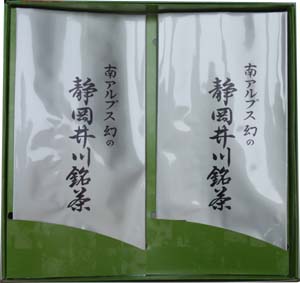 南アルプス 幻の
静岡井川銘茶
南アルプス 幻の
静岡井川銘茶